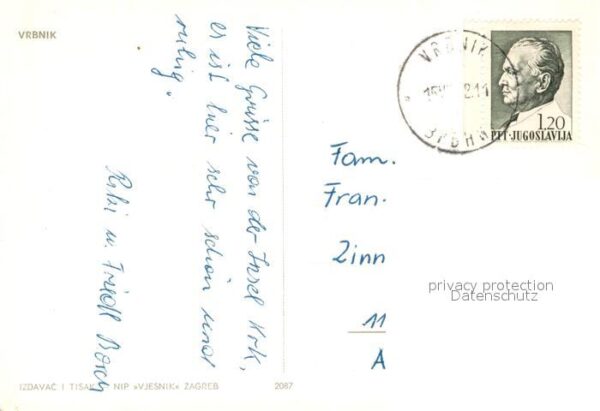 VRBNIK
Viele Grüsse von der Insel Krk,
es ist hier sehr schön und
ruhig.
Friedl
IZDAVAČ I TISAK NIP »VJESNIK« ZAGREB
2087
VRBNIK
ВРБНИК
1.20
PTT·JUGOSLAVIJA
Fam.
Fran.
Zinn
11
A
privacy protection
Datenschutz